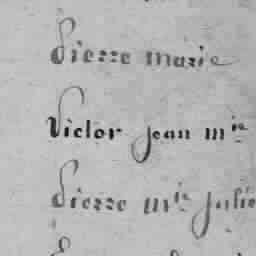 Pierre marie
Victor jean m^ie
Pierre m^ie julie